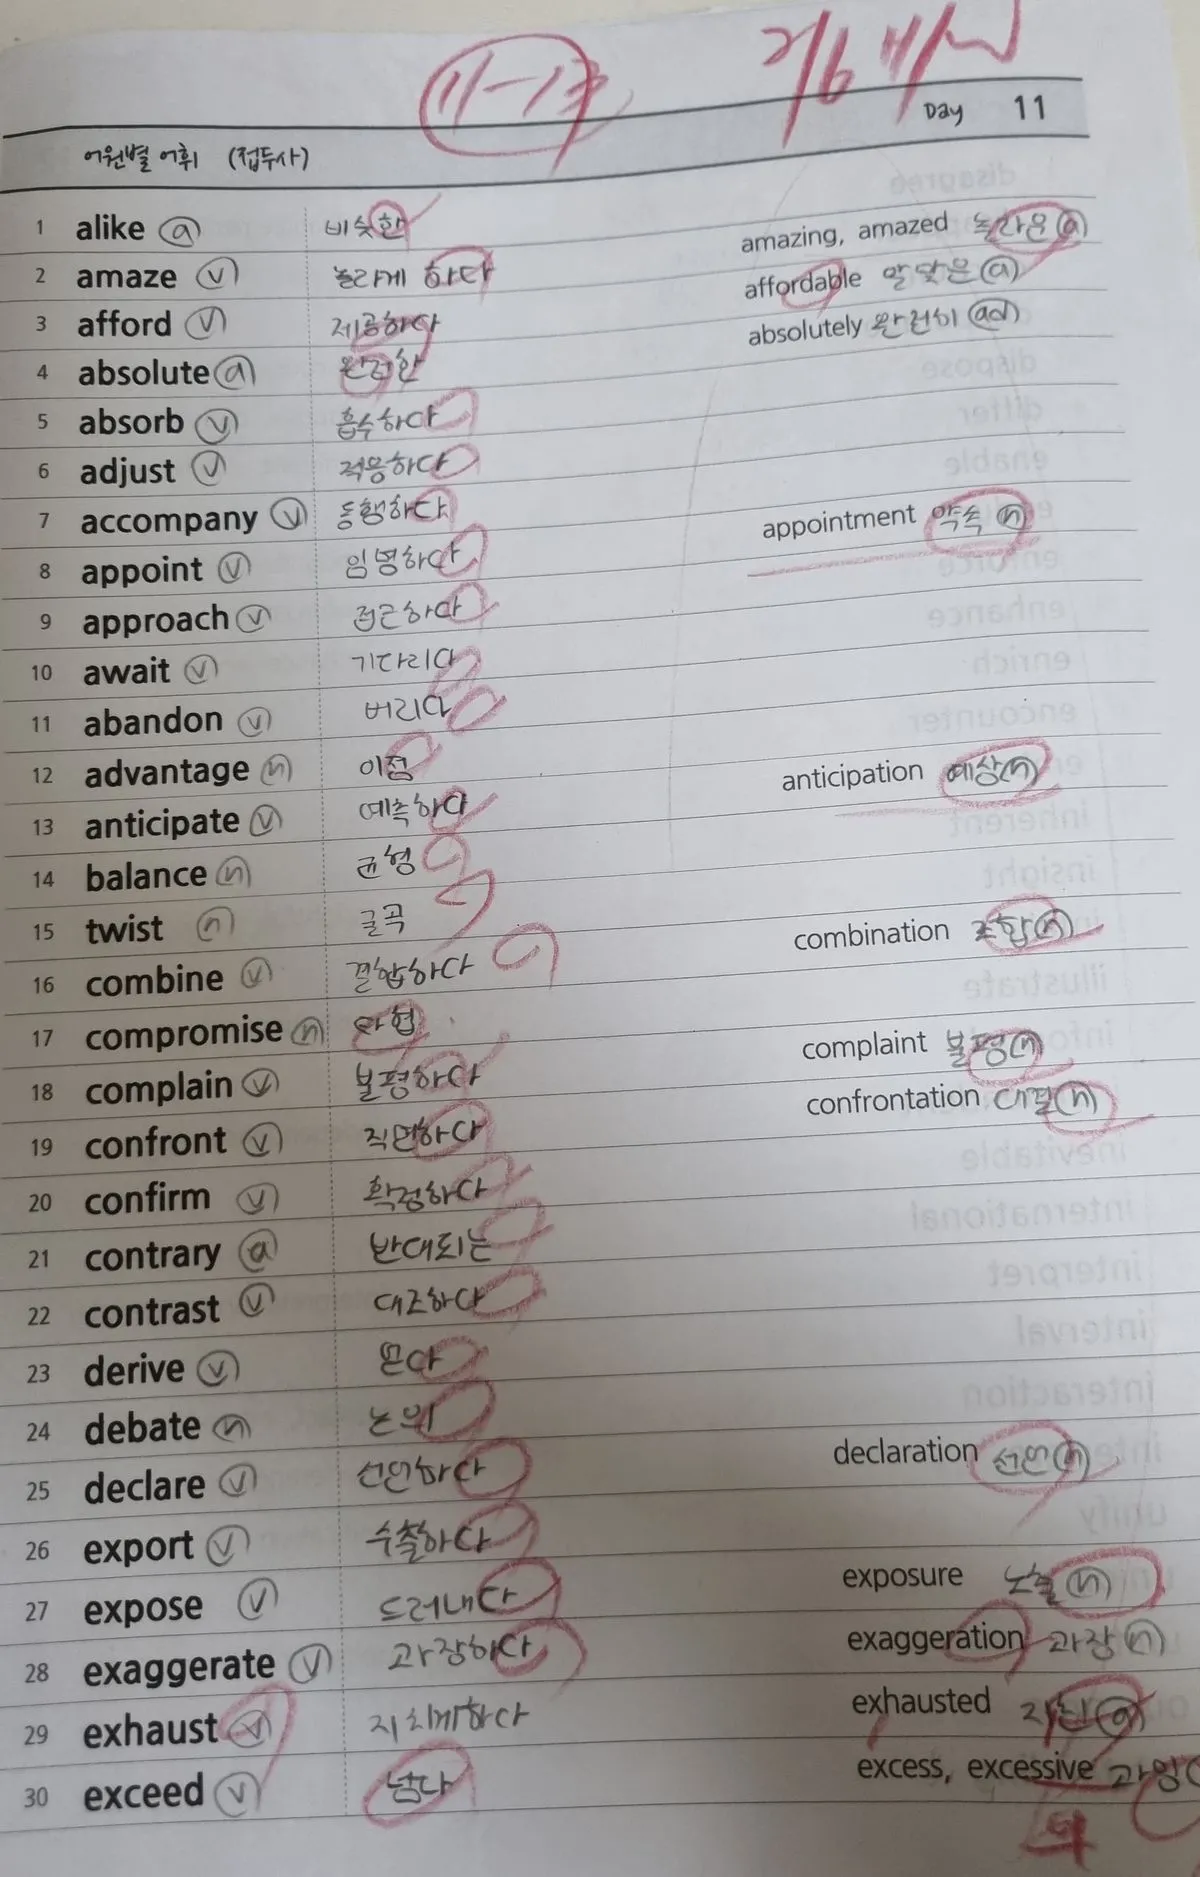 Day 11
어원별 어휘 (접두사)
1 alike ⓐ 비슷한 amazing, amazed 놀라운 ⓐ
2 amaze ⓥ 놀라게 하다 affordable 알맞은 ⓐ
3 afford ⓥ 제공하다 absolutely 완전히 ad
4 absolute ⓐ 완전한
5 absorb ⓥ 흡수하다
6 adjust ⓥ 적응하다
7 accompany ⓥ 동행하다 appointment 약속 ⓝ
8 appoint ⓥ 임명하다
9 approach ⓥ 접근하다
10 await ⓥ 기다리다
11 abandon ⓥ 버리다
12 advantage ⓝ 이점 anticipation 예상 ⓝ
13 anticipate ⓥ 예측하다
14 balance ⓝ 균형
15 twist ⓝ 굴곡 combination 조합 ⓝ
16 combine ⓥ 결합하다
17 compromise ⓝ 타협 complaint 불평 ⓝ
18 complain ⓥ 불평하다 confrontation 대결 ⓝ
19 confront ⓥ 직면하다
20 confirm ⓥ 확정하다
21 contrary ⓐ 반대되는
22 contrast ⓥ 대조하다
23 derive ⓥ 얻다
24 debate ⓝ 논의 declaration 선언 ⓝ
25 declare ⓥ 선언하다
26 export ⓥ 수출하다 exposure 노출 ⓝ
27 expose ⓥ 드러내다 exaggeration 과장 ⓝ
28 exaggerate ⓥ 과장하다 exhausted 지친 ⓐ
29 exhaust ⓥ 지치게하다 excess, excessive 과잉
30 exceed ⓥ 넘다